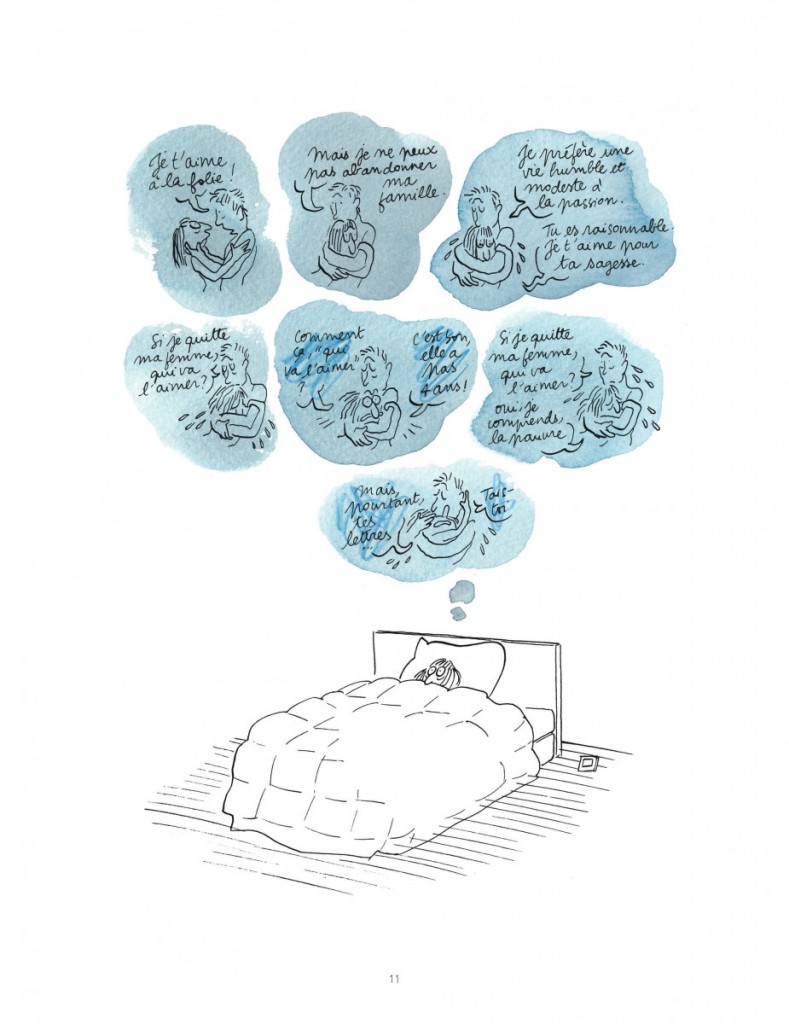 Je t'aime
à la folie!
Mais je ne peux
pas abandonner
ma
famille.
je préfère une
vie humble et
modeste à
la passion.
Tu es raisonnable.
Je t'aime pour
ta sagesse.
Si je quitte
ma femme,
qui va
l'aimer?
Comment
ça, "qui
va l'aimer"
?
C'est bon,
elle a
pas
4 ans!
Si je quitte
ma femme,
qui va
l'aimer?
oui, je
comprends,
la pauvre
mais,
pourtant,
tes
lettres
...
Tais-
toi
11